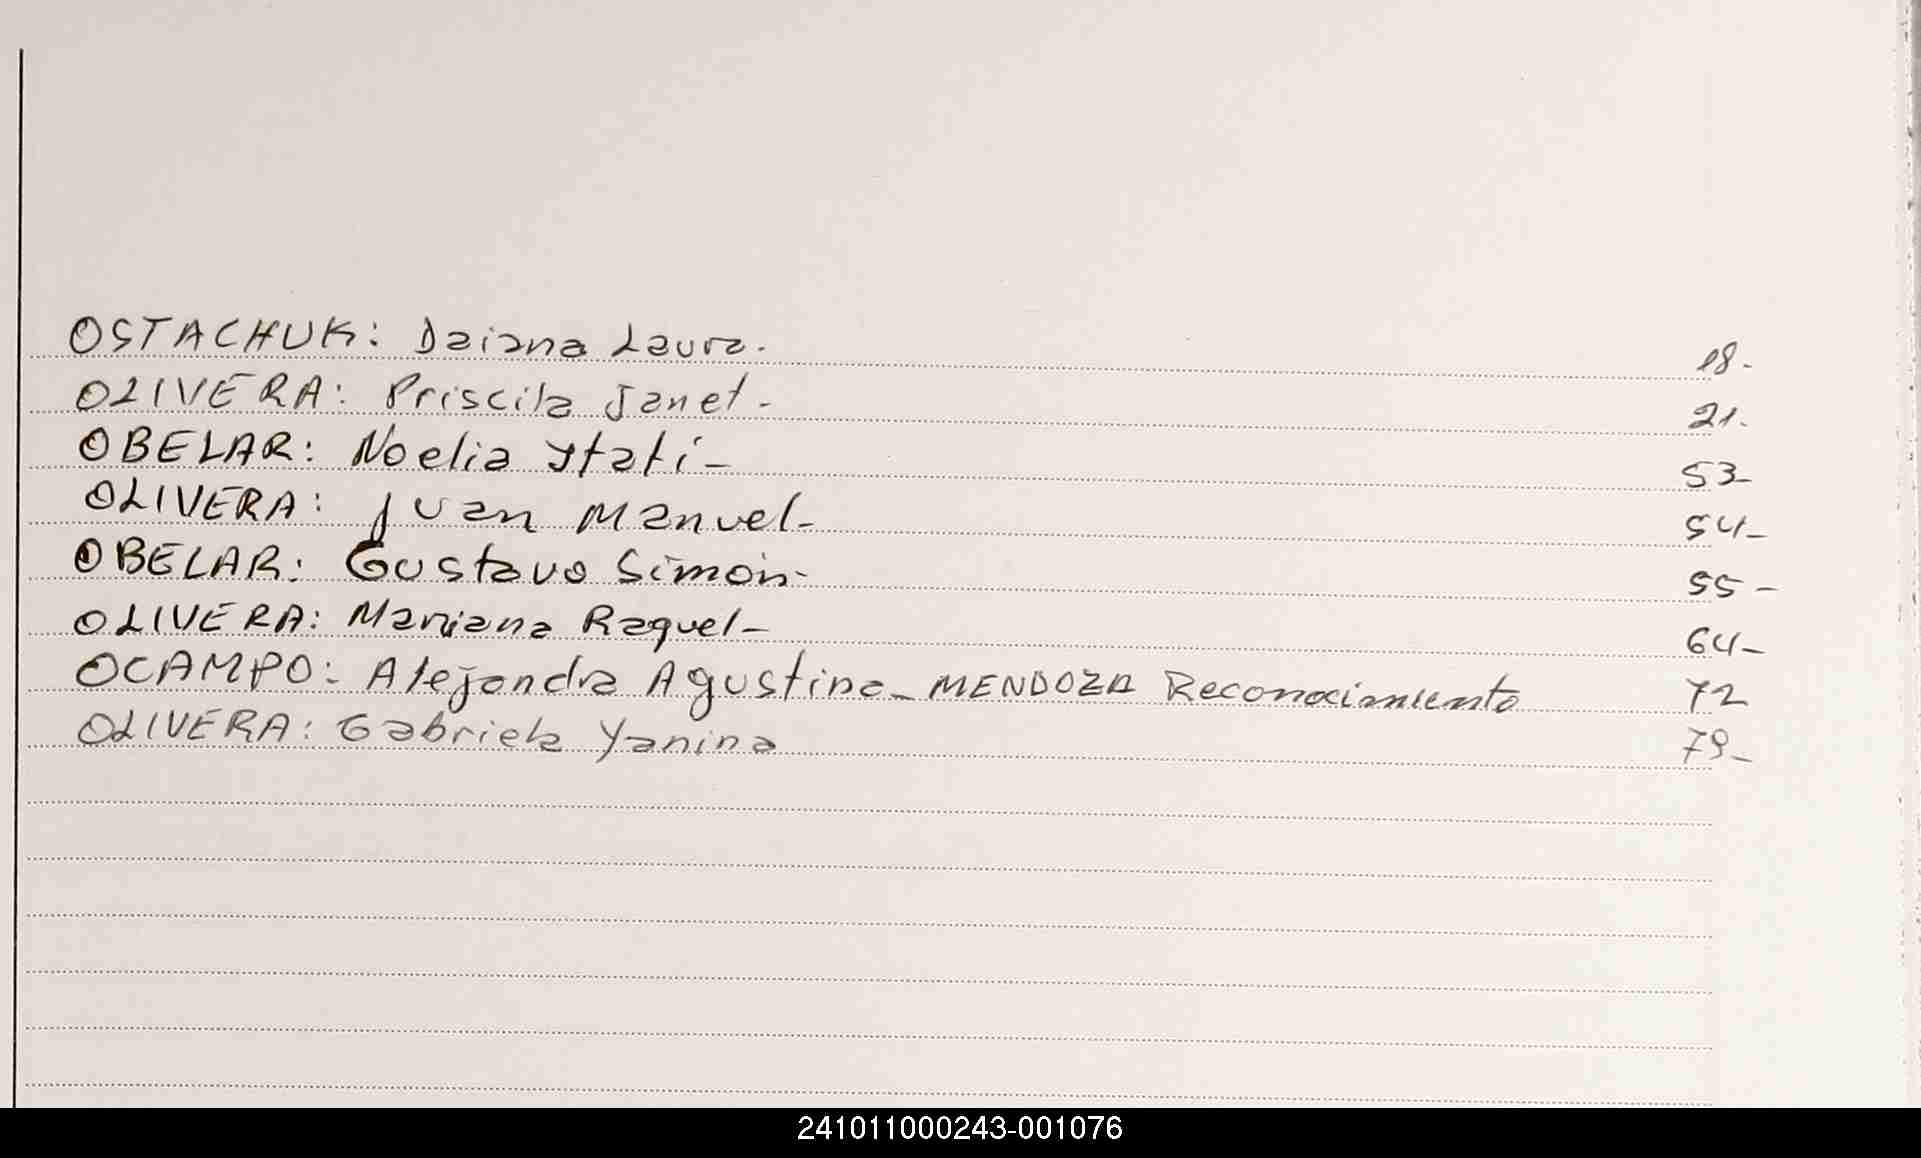 OSTACHUK: Daiana Laura. 18-
OLIVERA: Priscila Janet- 21-
OBELAR: Noelia Ytatí- 53-
OLIVERA: Juan Manuel- 54-
OBELAR: Gustavo Simón- 55-
OLIVERA: Mariana Raquel- 64-
OCAMPO: Alejandra Agustina- MENDOZA Reconocimiento 72
OLIVERA: Gabriela Yanina 79-
241011000243-001076